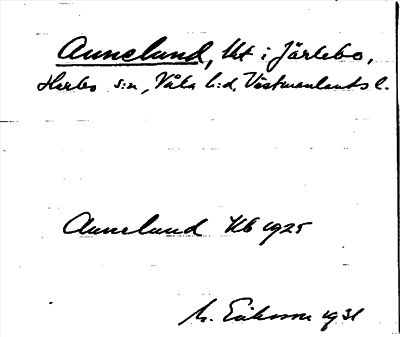 Annelund, lht i Järlebo,
Harbo s:n, Våla h:d, Västmanlands l.
Annelund Kb 1925
M. Eriksson 1931